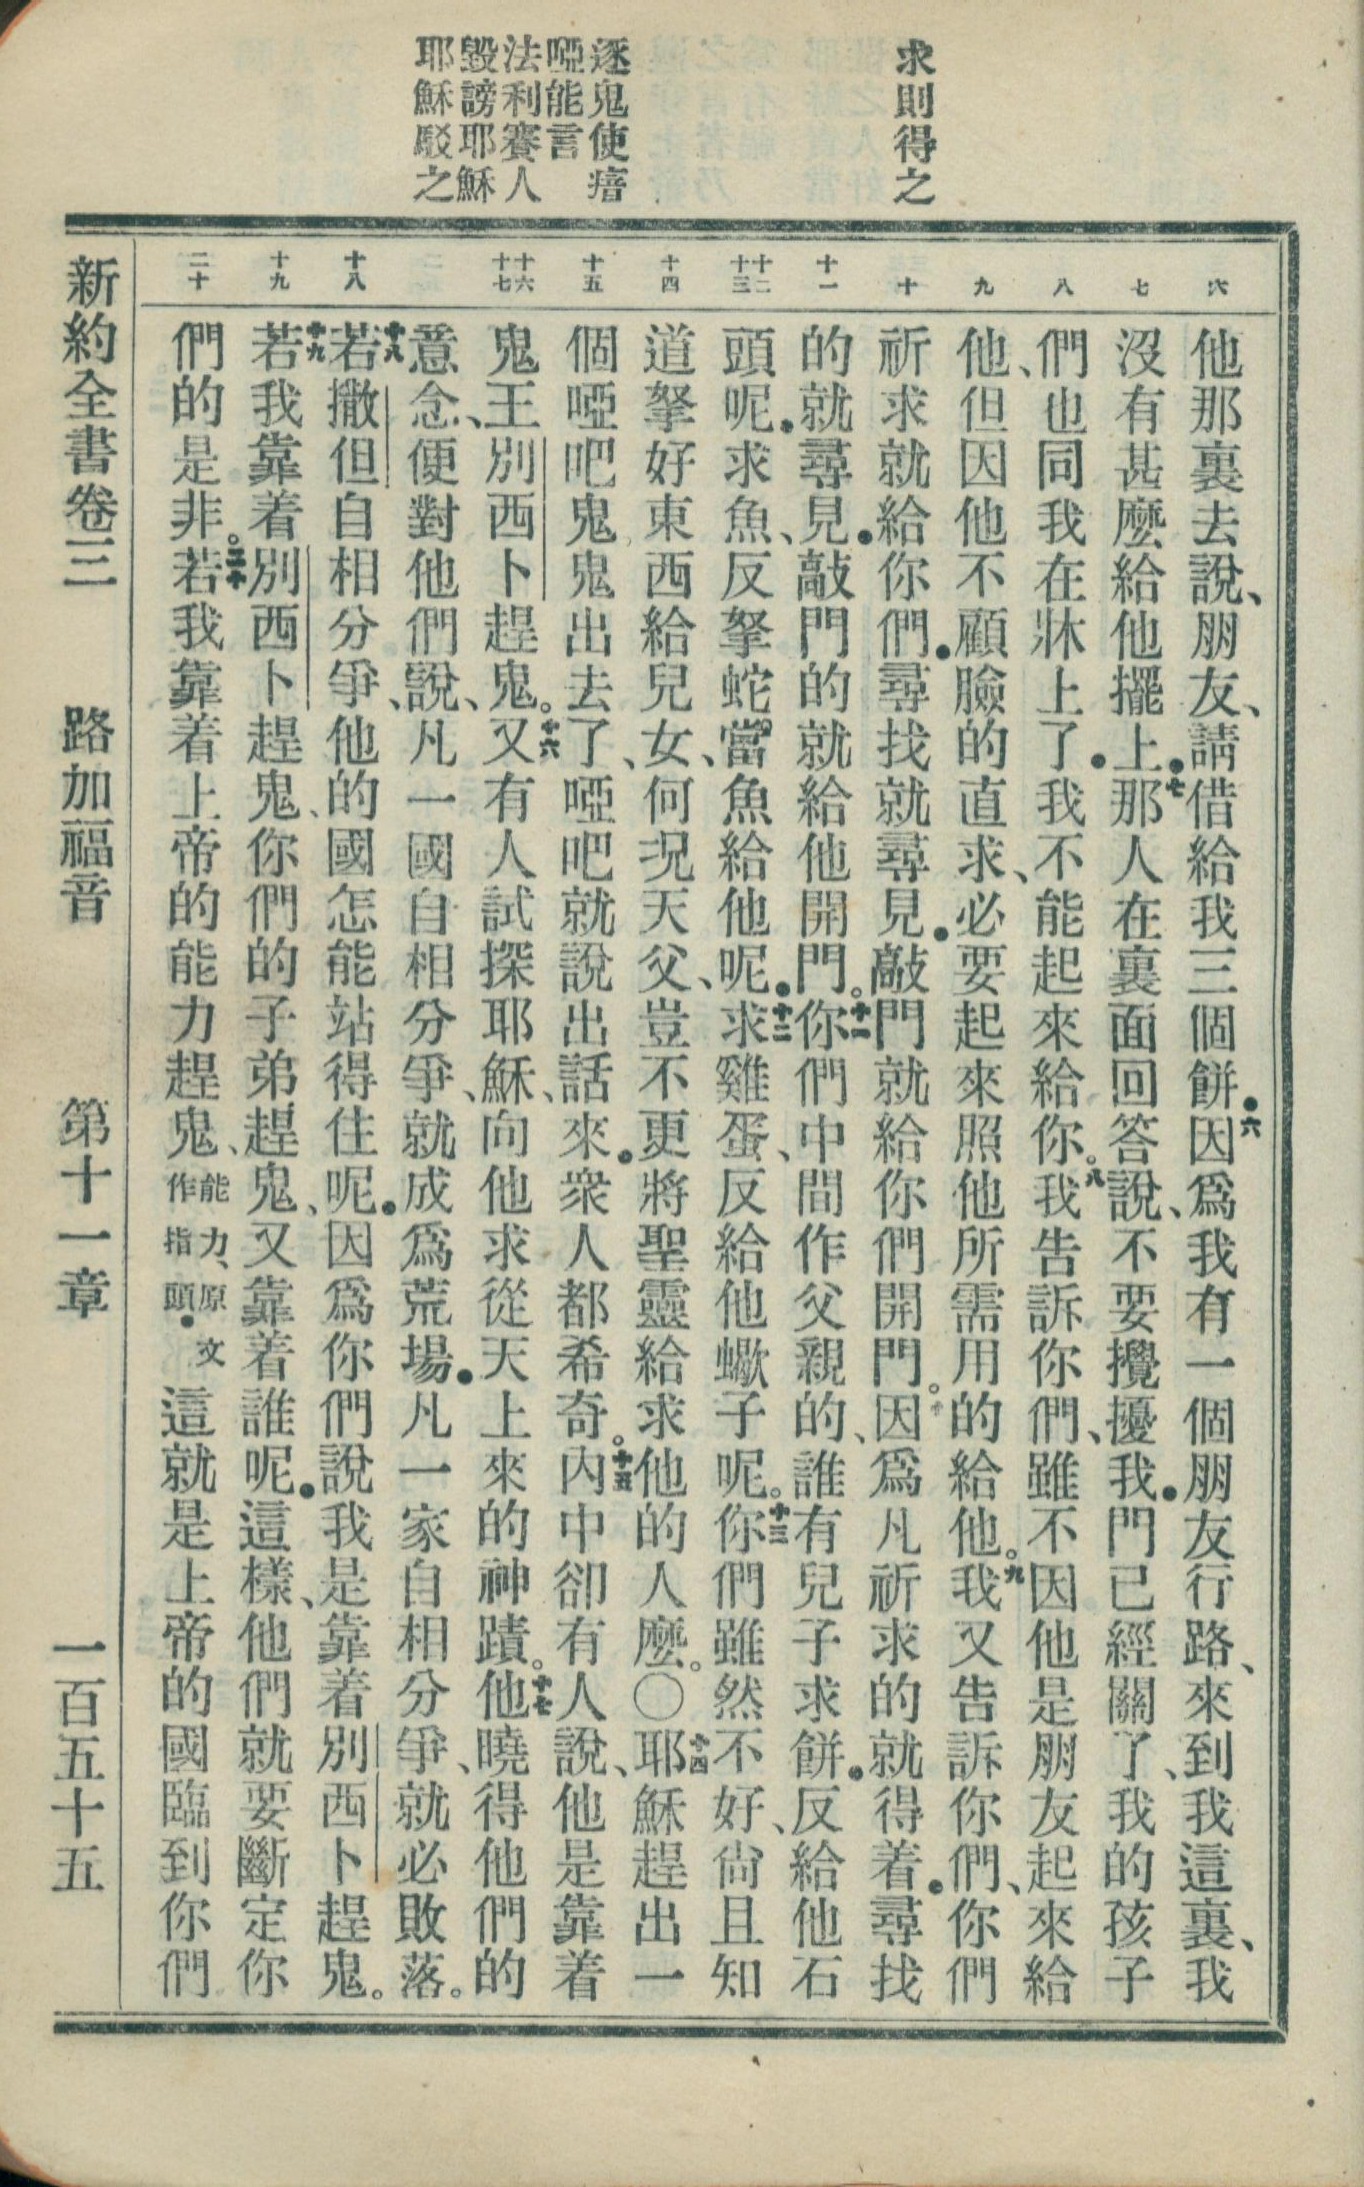 求則得之
逐鬼使瘖
啞能言
法利賽人
毀謗耶穌
耶穌駁之
六
七
八
九
十
十一
十二
十三
十四
十五
十六
十七
十八
十九
二十
他那裏去說、朋友、請借給我三個餅●六因爲我有一個朋友行路、來到我這裏、我
沒有甚麼給他擺上●七那人在裏面回答說、不要攪擾我●門已經關了、我的孩子
們也同我在牀上了●我不能起來給你。八我告訴你們、雖不因他是朋友起來給
他、但因他不顧臉的直求、必要起來照他所需用的給他。九我又告訴你們、你們
祈求就給你們●尋找就尋見●敲門就給你們開門。十因爲凡祈求的就得着●尋找
的就尋見●敲門的就給他開門。十一你們中間作父親的、誰有兒子求餅●反給他石
頭呢●求魚、反拏蛇當魚給他呢●十二求雞蛋、反給他蠍子呢。十三你們雖然不好、尙且知
道拏好東西給兒女、何况天父、豈不更將聖靈給求他的人麼。〇十四耶穌趕出一
個啞吧鬼鬼出去了、啞吧就說出話來●衆人都希奇。十五內中卻有人說、他是靠着
鬼王別西卜趕鬼。十六又有人試探耶穌、向他求從天上來的神蹟。十七他曉得他們的
意念、便對他們說、凡一國自相分爭、就成爲荒場●凡一家自相分爭、就必敗落。
十八若撒但自相分爭、他的國怎能站得住呢●因爲你們說我是靠着別西卜趕鬼。
十九若我靠着別西卜趕鬼、你們的子弟趕鬼、又靠着誰呢●這樣、他們就要斷定你
們的是非。二十若我靠着上帝的能力趕鬼、能力、原文作指頭●這就是上帝的國臨到你們
新約全書卷三 路加福音 第十一章 一百五十五